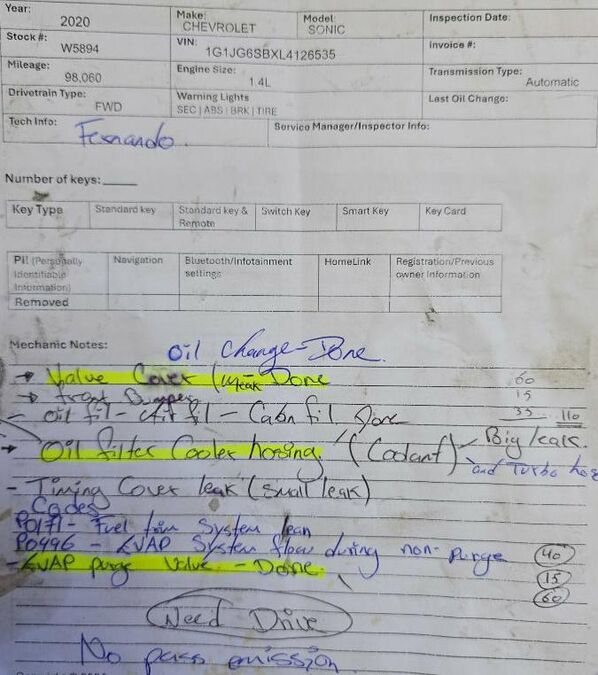 Year: 2020 Make: CHEVROLET Model SONIC Inspection Date:
Stock #: W5894 VIN: 1G1JG6SBXL4126535 Invoice #:
Mileage: 98,060 Engine Size: 1.4L Transmission Type: Automatic
Drivetrain Type: FWD Warning Lights SEC | ABS | BRK | TIRE Last Oil Change:
Tech Info: Fernando. Service Manager/Inspector Info:
Number of keys:
Key Type Standard key Standard key & Remote Switch Key Smart Key Key Card
PII (Personally Identifiable Information) Navigation Bluetooth/Infotainment settings HomeLink Registration/Previous owner information
Removed
Mechanic Notes: Oil Change - Done.
→ Valve Cover leak Done 60
→ Front Bumper 15
- Oil fil - Air fil - Cabn fil Done 35 110
→ Oil filter Cooler hosing. (Coolant) - Big leak.
and Turbo
- Timing Cover leak (small leak)
Codes
P0171 - Fuel trim System lean
P0496 - EVAP System flow during non-purge 40
- EVAP purge Valve - Done. 15
60
Need Drive
No pass emission